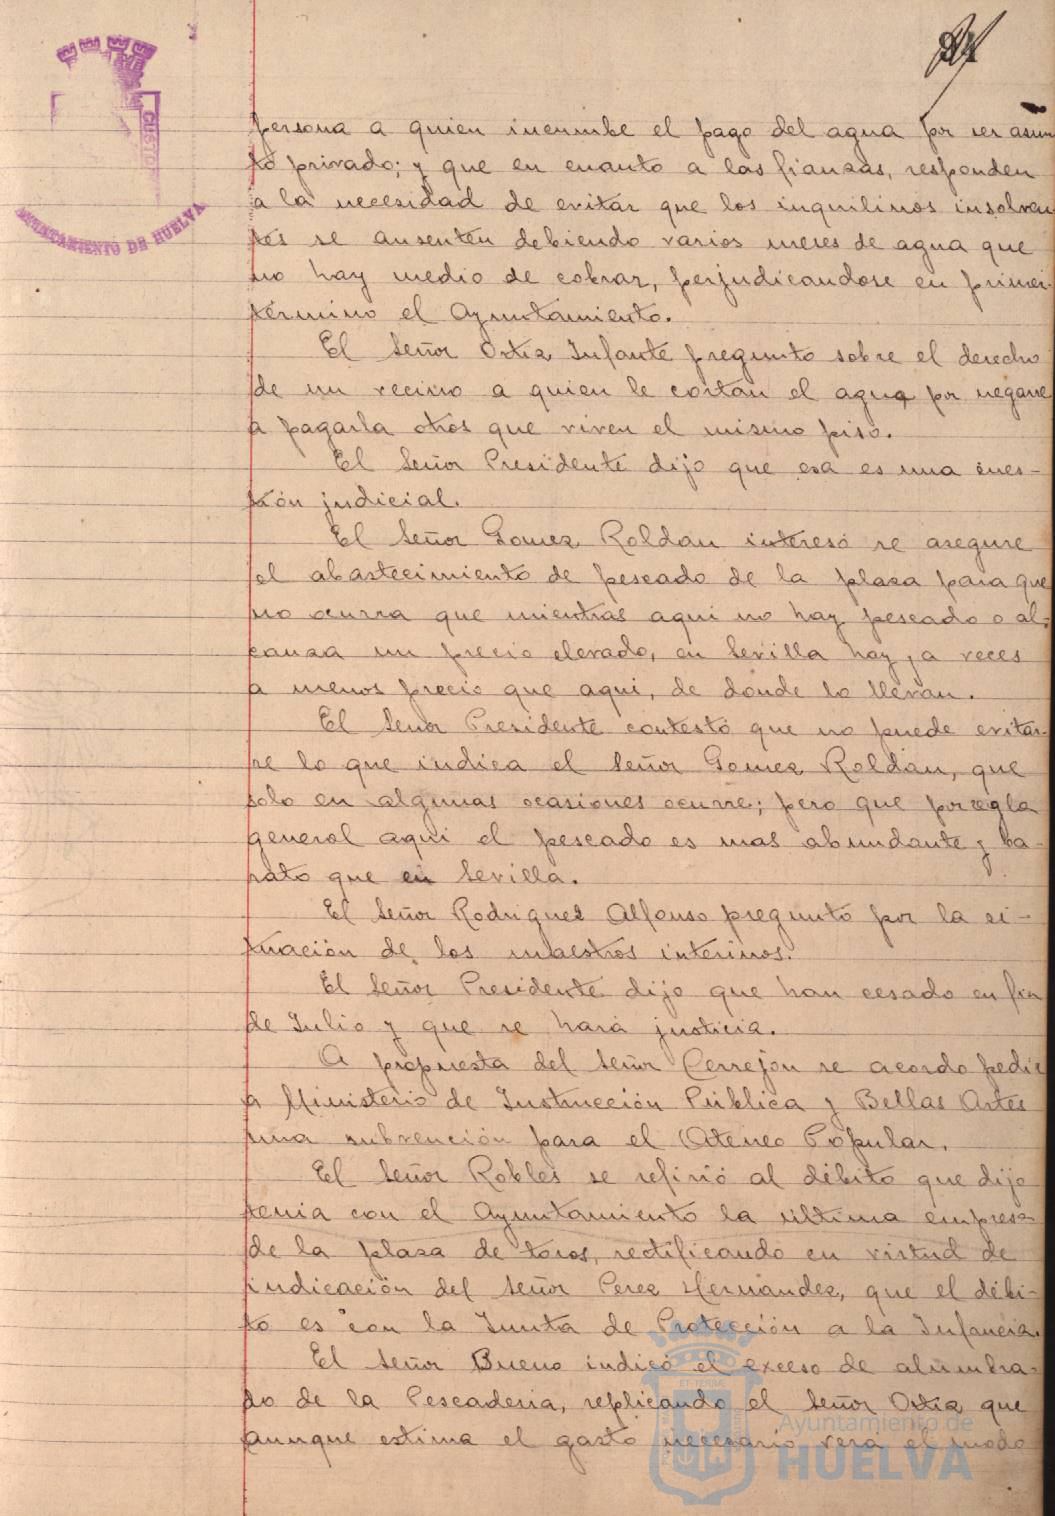 persona a quien incumbe el pago del agua por ser asun
to privado; y que en cuanto a las fianzas, responden
a la necesidad de evitar que los inquilinos insolven
tes se ausenten debiendo varios meses de agua que
no hay medio de cobrar, perjudicandose en primer
término el Ayuntamiento.
El Señor Ortiz Infante preguntó sobre el derecho
de un vecino a quien le cortan el agua por negarse
a pagarla otros que viven el mismo piso.
El Señor Presidente dijo que esa es una cues-
tión judicial.
El Señor Gomez Roldan interesó se asegure
el abastecimiento de pescado de la plaza para que
no ocurra que mientras aqui no hay pescado o al-
canza un precio elevado, en Sevilla hay, a veces
a menos precio que aqui, de donde lo llevan.
El Señor Presidente contestó que no puede evitar-
se lo que indica el Señor Gomez Roldán, que
solo en algunas ocasiones ocurre; pero que por regla
general aqui el pescado es mas abundante y ba-
rato que en Sevilla.
El Señor Rodriguez Alfonso preguntó por la si-
tuación de los maestros interinos.
El Señor Presidente dijo que han cesado en fin
de Julio y que se hará justicia.
A propuesta del Señor Cerrejon se acordo pedir
a Ministerio de Instrucción Pública y Bellas Artes
una subvención para el Ateneo Popular.
El Señor Robles se refirió al débito que dijo
tenia con el Ayuntamiento la última empresa
de la plaza de toros, rectificando en virtud de
indicación del Señor Perez Hernández, que el débi-
to es con la Junta de Protección a la Infancia.
El Señor Bueno indicó el exceso de alumbra-
do de la Pescaderia, replicando el Señor Ortiz que
aunque estima el gasto necesario vera el modo
CUSTO
AYUNTAMIENTO DE HUELVA
Ayuntamiento de
HUELVA